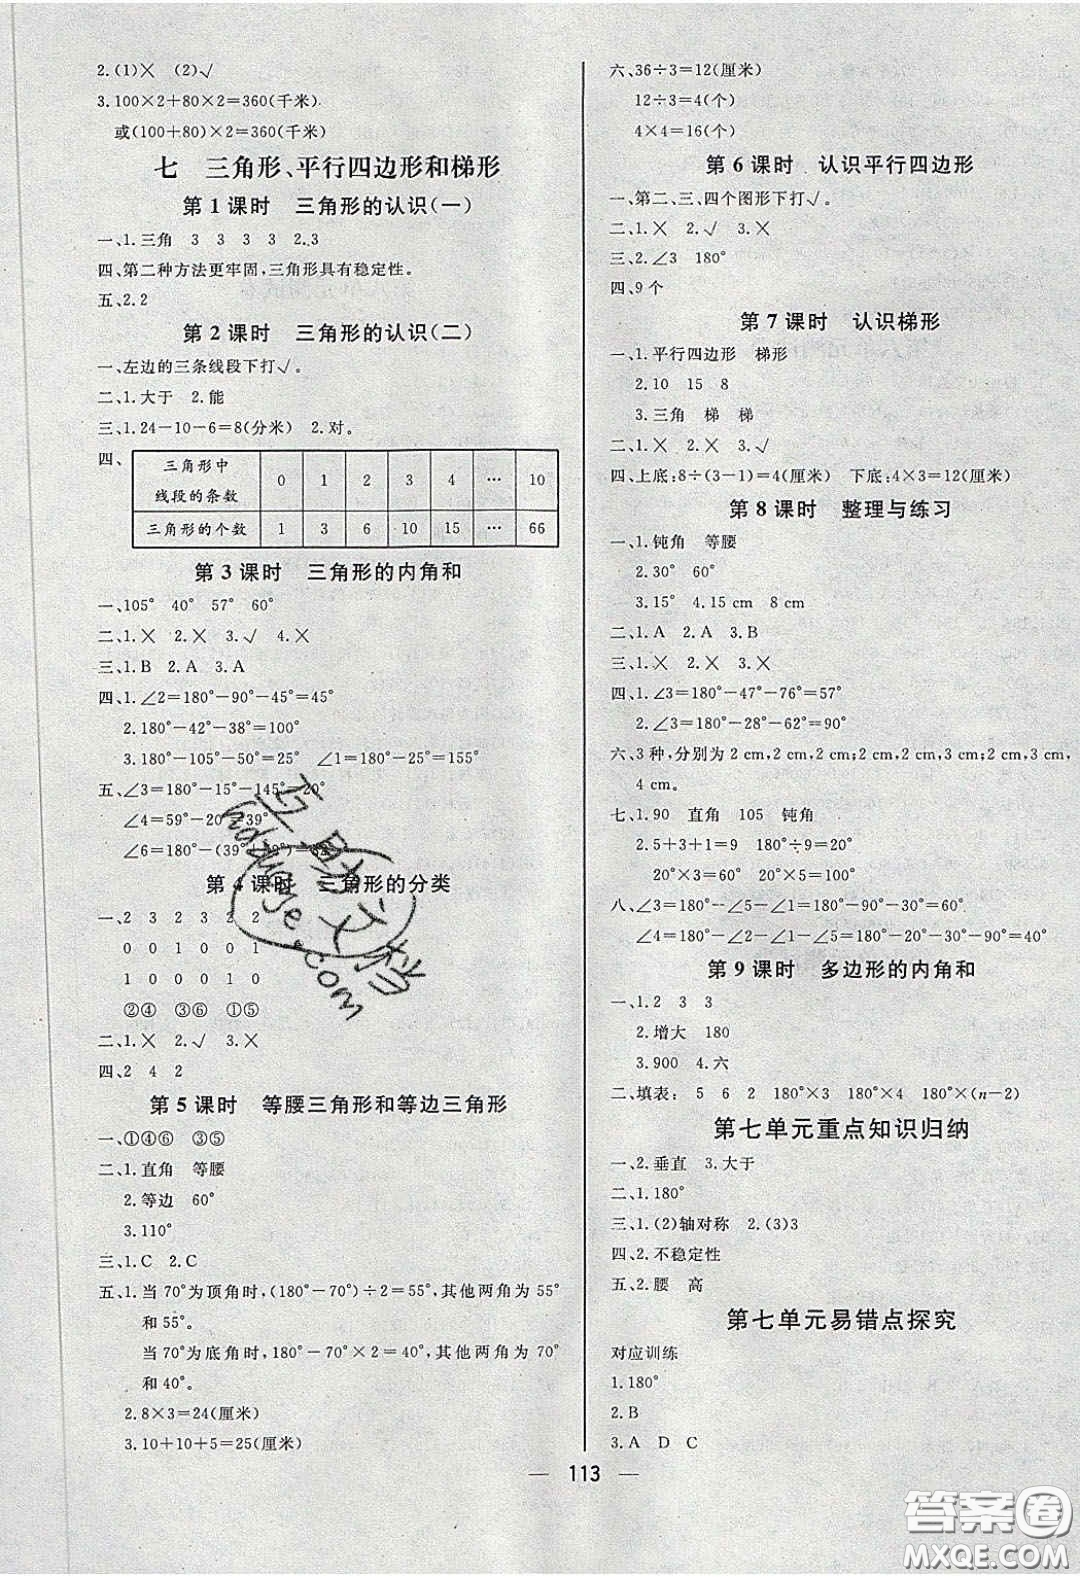 2.(1)╳ (2)√
3.100×2+80×2=360(千米)
或(100+80)×2=360(千米)
七 三角形、平行四边形和梯形
第1课时 三角形的认识(一)
一、1.三角 3 3 3 3 2.3
四、第二种方法更牢固,三角形具有稳定性。
五、2.2
第2课时 三角形的认识(二)
一、左边的三条线段下打√。
二、1.大于 2.能
三、1.24-10-6=8(分米) 2.对。
四、
三角形中线段的条数 0 1 2 3 4 … 10
三角形的个数 1 3 6 10 15 … 66
第3课时 三角形的内角和
一、105° 40° 57° 60°
二、1.╳ 2.╳ 3.√ 4.╳
三、1.B 2.A 3.A
四、1.∠2=180°-90°-45°=45°
2.180°-42°-38°=100°
3.180°-105°-50°=25° ∠1=180°-25°=155°
五、∠3=180°-15°-145°=20°
∠4=59°-20°=39°
∠6=180°-(39°+
第4课时 三角形的分类
一、2 3 2 3 2 2
0 0 1 0 0 1
1 0 0 0 1 0
②④ ③⑥ ①⑤
二、1.╳ 2.√ 3.╳
四、2 4 2
第5课时 等腰三角形和等边三角形
一、①④⑥ ③⑤
二、1.直角 等腰
2.等边 60°
3.110°
三、1.C 2.C
五、1.当70°为顶角时,(180°-70°)÷2=55°,其他两角为55°
和55°。
当70°为底角时,180°-70°×2=40°,其他两角为70°
和40°。
2.8×3=24(厘米)
3.10+10+5=25(厘米)
六、36÷3=12(厘米)
12÷3=4(个)
4×4=16(个)
第6课时 认识平行四边形
一、第二、三、四个图形下打√。
二、1.╳ 2.√ 3.╳
三、2.∠3 180°
四、9个
第7课时 认识梯形
一、1.平行四边形 梯形
2.10 15 8
3.三角 梯 梯
二、1.╳ 2.╳ 3.√
四、上底:8÷(3-1)=4(厘米) 下底:4×3=12(厘米)
第8课时 整理与练习
一、1.钝角 等腰
2.30° 60°
3.15° 4.15 cm 8 cm
二、1.A 2.A 3.B
三、1.╳ 2.╳ 3.╳
四、1.∠3=180°-47°-76°=57°
2.∠3=180°-28°-62°=90°
六、3种,分别为2 cm,2 cm,2 cm;2 cm,2 cm,3 cm;2 cm,3 cm,
4 cm。
七、1.90 直角 105 钝角
2.5+3+1=9 180°÷9=20°
20°×3=60° 20°×5=100°
八、∠3=180°-∠5-∠1=180°-90°-30°=60°
∠4=180°-∠2-∠1-∠5=180°-20°-30°-90°=40°
第9课时 多边形的内角和
一、1.2 3 3
2.增大 180
3.900 4.六
二、填表: 5 6 2 180°×3 180°×4 180°×(n-2)
第七单元重点知识归纳
一、2.垂直 3.大于
二、1.180°
三、1.(2)轴对称 2.(3)3
四、2.不稳定性
五、2.腰 高
第七单元易错点探究
对应训练
1.180°
2.B
3.A D C
113
答案圈
MXQE.COM